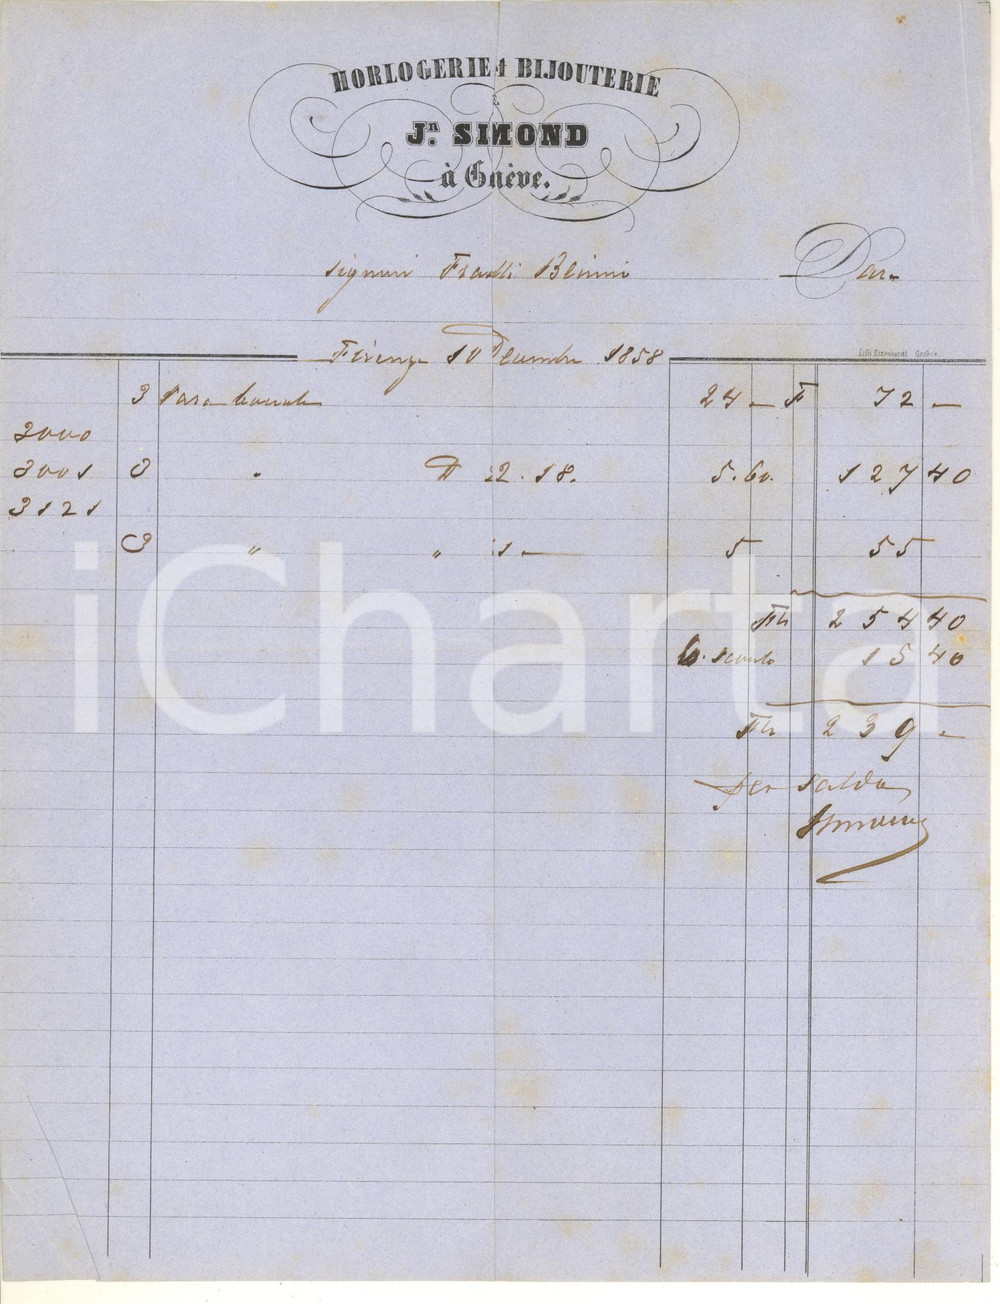 HORLOGERIE & BIJOUTERIE
Jn. SIMOND
à Genève.
Signori Fratelli Dar
Firenze 10 Decembre 1858
Lith. Eisenhardt Genève.
3 Para 24 – F 72 –
3000
3001 3 " 22.18. 5.60. 127 40
3121
3 " " 11 – 5 – 55 –
Fchi 254 40
6. sconto 15 40
Fchi 239 –
per saldo
Simond
iCharta